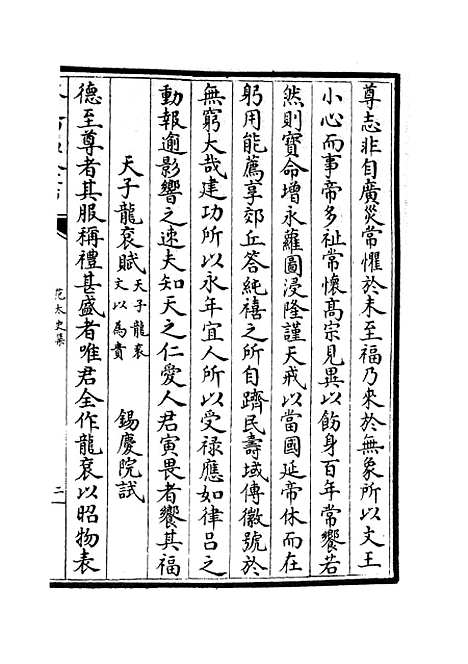 尊志非自廣災常懼於未至福乃來於無象所以文王
小心而事帝多祉常懷高宗見異以飭身百年常饗若
然則寶命增永蘿圖浸隆謹天戒以當國延帝休而在
躬用能薦享郊丘答純禧之所自躋民壽域傳徽號於
無窮大哉建功所以永年宜人所以受禄應如律呂之
動報逾影響之速夫知天之仁愛人君寅畏者饗其福
天子龍衮賦天子龍衮文以為貴 錫慶院試
德至尊者其服稱禮甚盛者唯君全作龍衮以昭物表
范太史集
二